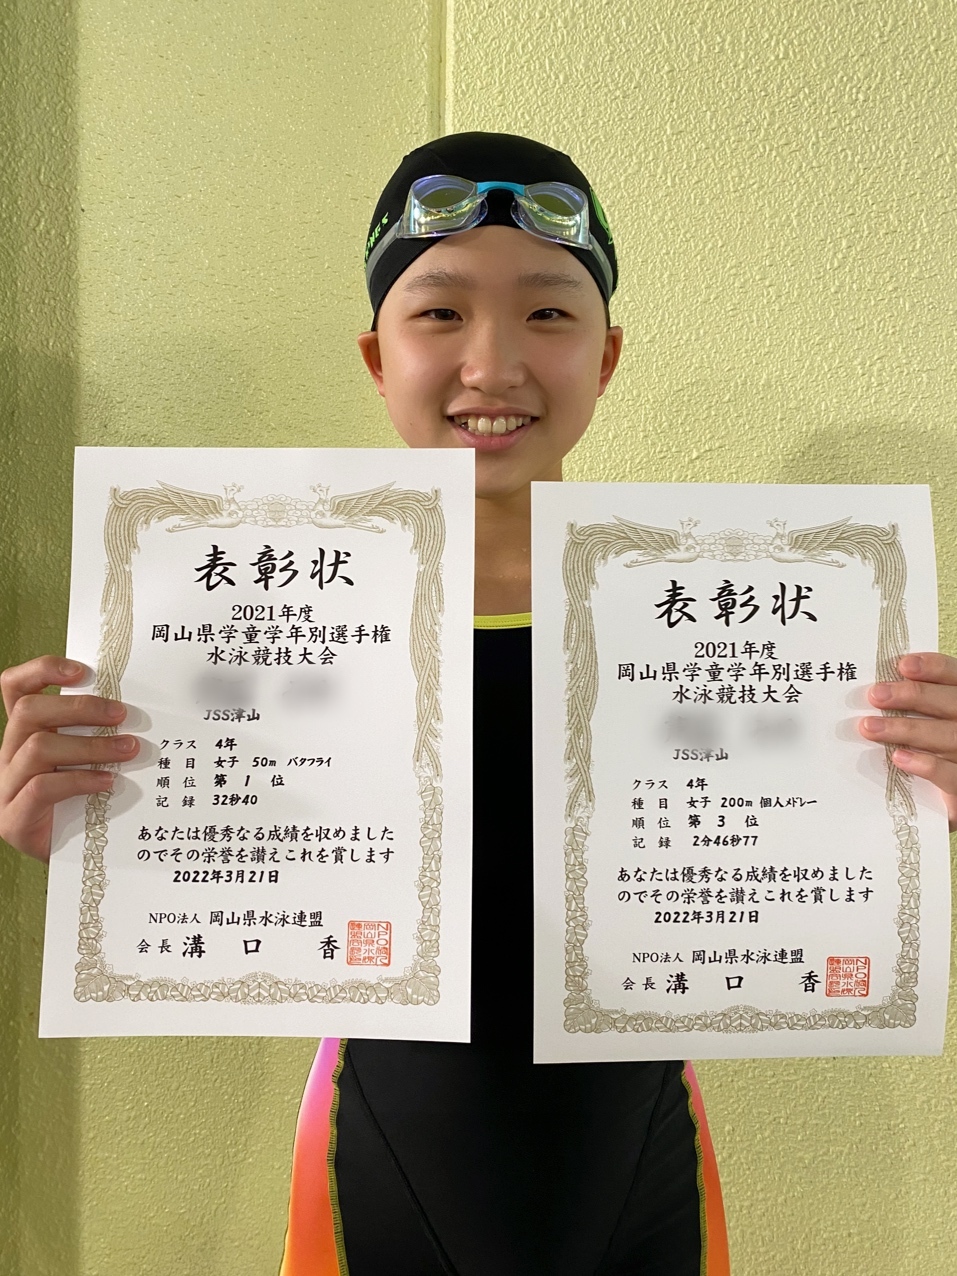 表彰状
2021年度
岡山県学童学年別選手権
水泳競技大会
JSS津山
クラス 4年
種目 女子 50m バタフライ
順位 第 1 位
記録 32秒40
あなたは優秀なる成績を収めました
のでその栄誉を讃えこれを賞します
2022年3月21日
NPO法人 岡山県水泳連盟
会長 溝口 香
表彰状
2021年度
岡山県学童学年別選手権
水泳競技大会
JSS津山
クラス 4年
種目 女子 200m 個人メドレー
順位 第 3 位
記録 2分46秒77
あなたは優秀なる成績を収めました
のでその栄誉を讃えこれを賞します
2022年3月21日
NPO法人 岡山県水泳連盟
会長 溝口 香